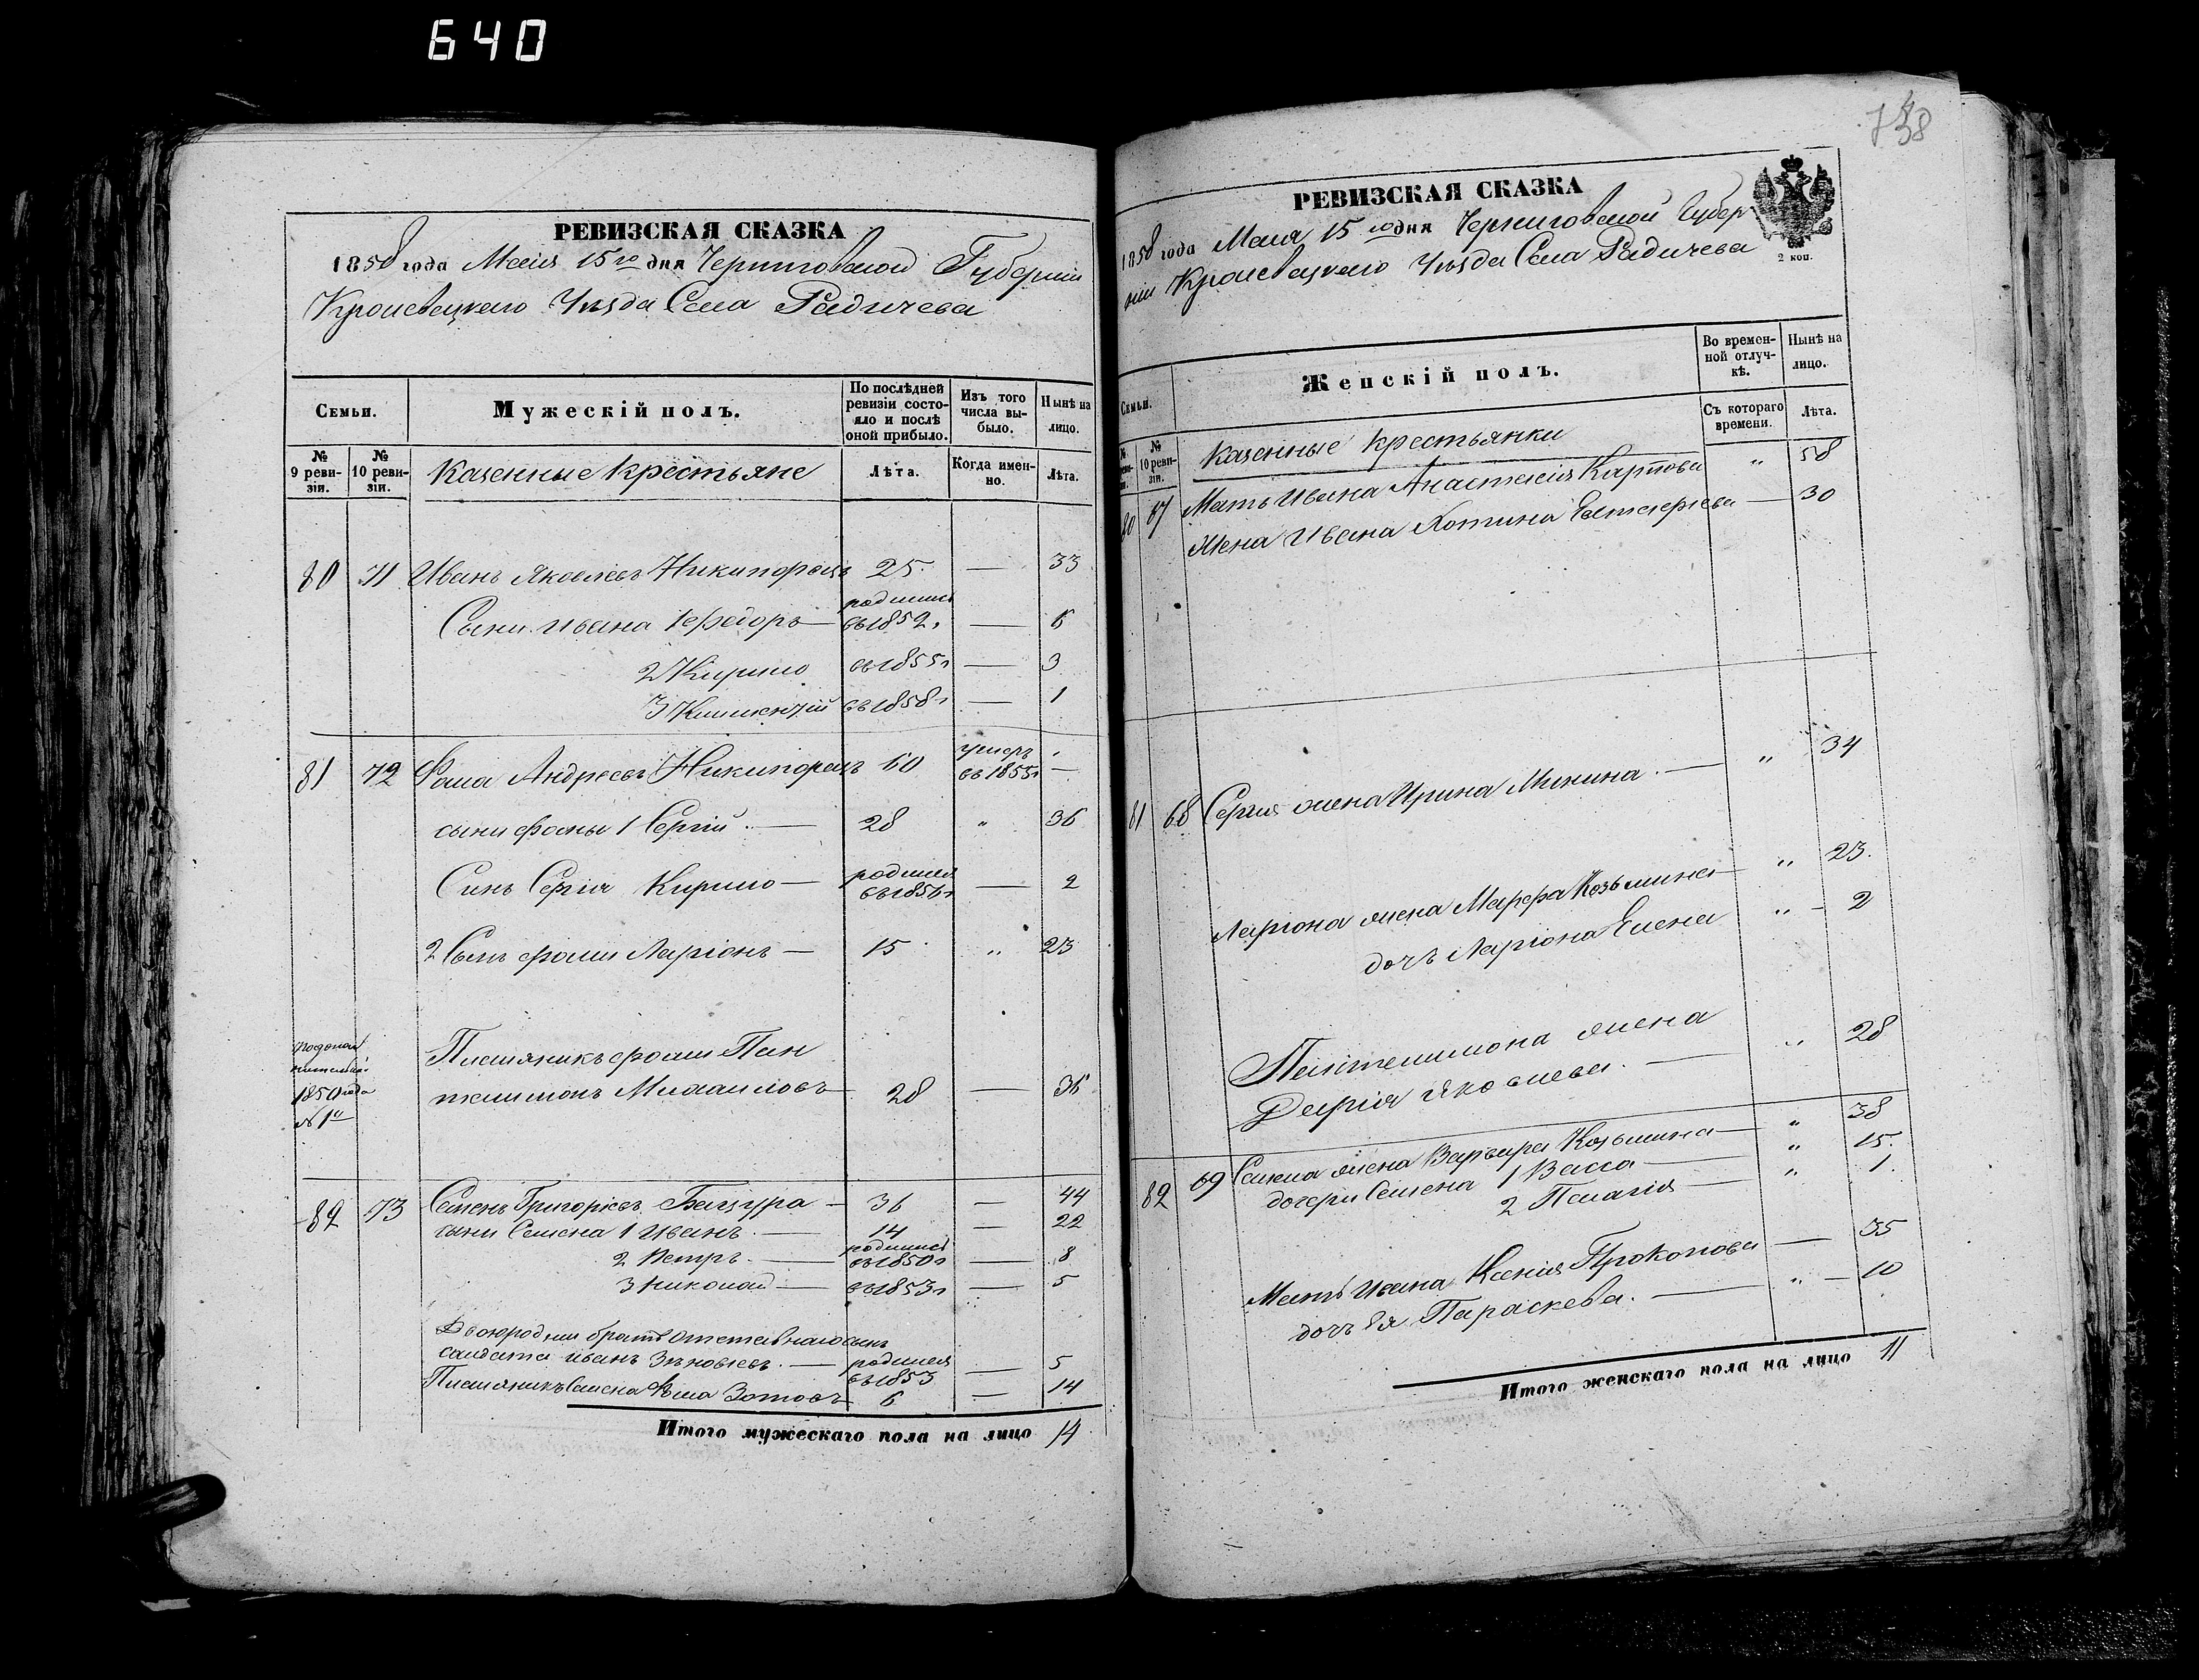 640
РЕВИЗСКАЯ СКАЗКА
1858 года Маія 15го дня Черниговской Губерніи
Кролевецкаго Уѣзда Села Радичева
Семьи.
Мужескій полъ.
По послѣдней ревизіи состояло и послѣ оной прибыло.
Изъ того числа выбыло.
Нынѣ на лицо.
№ 9 ревизіи.
№ 10 ревизіи.
Казенные крестьяне
Лѣта.
Когда именно.
Лѣта.
80 71 Иванъ Яковлевъ Никипорецъ 25 — 33
родился
Сыни Ивана 1 Федоръ — въ 1852 г — 6
2 Кирило въ 1855 г — 3
3 въ 1858 г — 1
умеръ
81 72 Фома Андреевъ Никипорецъ 60 въ 1855 г —
сыни Фомы 1 Сергій — 28 " 36
родился
Синъ Сергія Кирило — въ 1856 г — 2
2 Сынъ Фоми Ларіонъ — 15 " 23
Племяникъ Фоми Пан
1850 года
телимонъ Михаиловъ 28 — 36
№ 1й
82 73 Семенъ Григоріевъ Бацура — 36 — 44
сыни Семена 1 Иванъ — 14 — 22
родился
2 Петръ — въ 1850 г — 8
3 Николай — въ 1853 г — 5
Двоюродни братъ отставнаго сынъ
солдата Иванъ Зѣновіевъ — родился — 5
въ 1853
Племяникъ Семена Фома Зотовъ 6 — 14
Итого мужескаго пола на лицо 14
738
РЕВИЗСКАЯ СКАЗКА
1858 года Маія 15го дня Черниговской Губер
ніи Кролевецкаго Уѣзда Села Радичева
2 коп.
Семьи.
Женскій полъ.
Во временной отлучкѣ.
Нынѣ на лицо.
№ 10 ревизіи.
Съ котораго времени.
Лѣта.
Казенные крестьянки
80 67 Мать Ивана Анастасія Карпова " 58
Жена Ивана Хотина Евстафіева — 30
81 68 Сергія жена Ирина Минина — " 34
Ларіона жена Марфа Козьмина — " 23
дочъ Ларіона Елена " — 2
Пантелимона жена
Дарія Яковлева — " 28
82 69 Семена жена Варвара Козьмина — " 38
дочери Семена 1 Васса — " 15
2 Пелагія — " 1
Мать Ивана Ксенія Прокопова — 35
дочъ Ея Параскева — " — 10
Итого женскаго пола на лицо 11